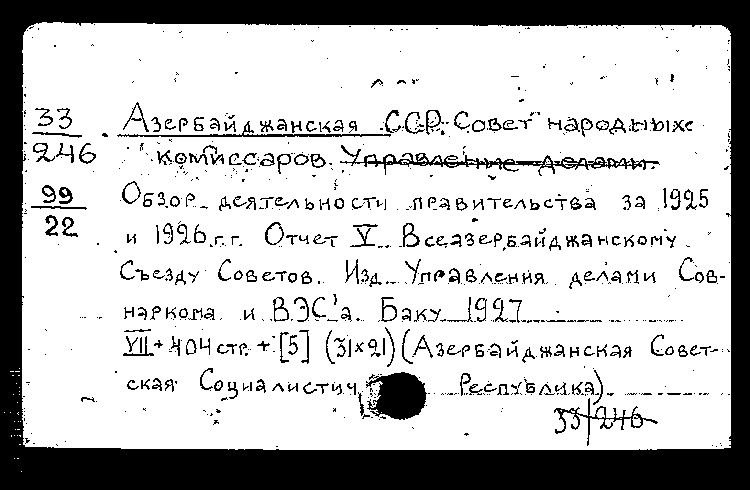 33
246
Азербайджанская ССР. Совет народных
комиссаров. Управление делами.
99
22
Обзор деятельности правительства за 1925
и 1926 г.г. Отчет V Всеазербайджанскому
Съезду Советов. Изд. Управления делами Сов-
наркома и ВЭС'а. Баку 1927
VII + 404 стр. + [5] (31×21) (Азербайджанская Совет-
ская Социалистич. Республика)
33/246